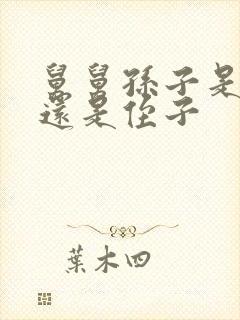 舅舅孫子是
還是侄子
葉木四